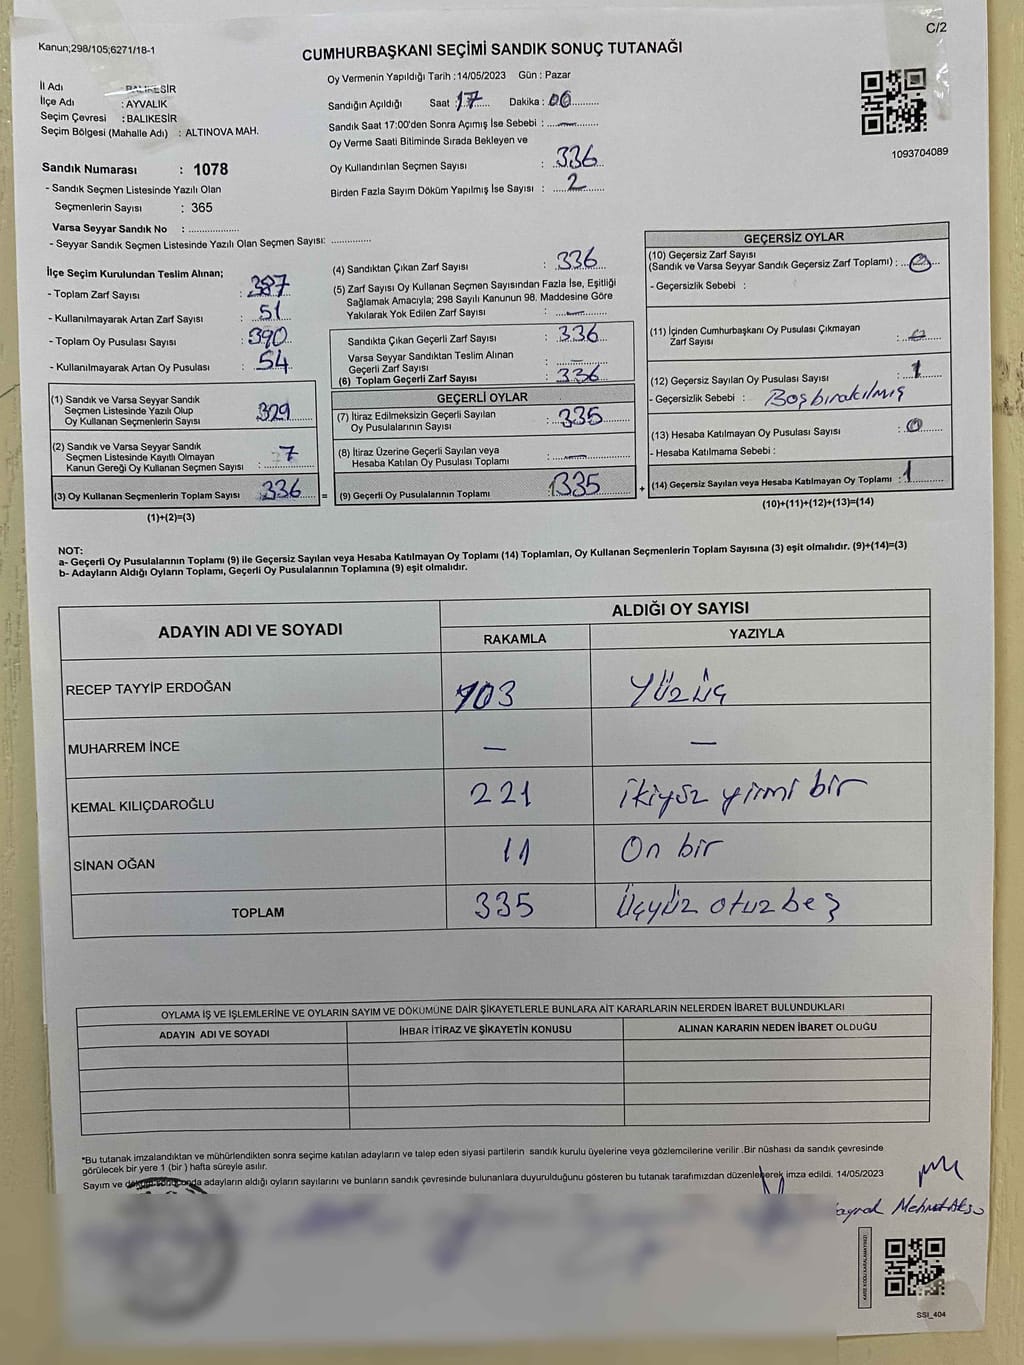 Kanun;298/105;6271/18-1
C/2
CUMHURBAŞKANI SEÇİMİ SANDIK SONUÇ TUTANAĞI
İl Adı : BALIKESİR
İlçe Adı : AYVALIK
Seçim Çevresi : BALIKESİR
Seçim Bölgesi (Mahalle Adı) : ALTINOVA MAH.
Oy Vermenin Yapıldığı Tarih :14/05/2023 Gün : Pazar
Sandığın Açıldığı Saat : 17 Dakika : 00
Sandık Saat 17:00'den Sonra Açımış İse Sebebi : —
Oy Verme Saati Bitiminde Sırada Bekleyen ve
Oy Kullandırılan Seçmen Sayısı : 336
Birden Fazla Sayım Döküm Yapılmış İse Sayısı : 2
1093704089
Sandık Numarası : 1078
- Sandık Seçmen Listesinde Yazılı Olan
Seçmenlerin Sayısı : 365
Varsa Seyyar Sandık No : ..................
- Seyyar Sandık Seçmen Listesinde Yazılı Olan Seçmen Sayısı: ...............
İlçe Seçim Kurulundan Teslim Alınan;
- Toplam Zarf Sayısı : 387
- Kullanılmayarak Artan Zarf Sayısı : 51
- Toplam Oy Pusulası Sayısı : 390
- Kullanılmayarak Artan Oy Pusulası : 54
(1) Sandık ve Varsa Seyyar Sandık
Seçmen Listesinde Yazılı Olup
Oy Kullanan Seçmenlerin Sayısı 329
(2) Sandık ve Varsa Seyyar Sandık
Seçmen Listesinde Kayıtlı Olmayan
Kanun Gereği Oy Kullanan Seçmen Sayısı : 7
(3) Oy Kullanan Seçmenlerin Toplam Sayısı : 336 =
(1)+(2)=(3)
(4) Sandıktan Çıkan Zarf Sayısı : 336
(5) Zarf Sayısı Oy Kullanan Seçmen Sayısından Fazla İse, Eşitliği
Sağlamak Amacıyla; 298 Sayılı Kanunun 98. Maddesine Göre
Yakılarak Yok Edilen Zarf Sayısı : —
Sandıkta Çıkan Geçerli Zarf Sayısı : 336
Varsa Seyyar Sandıktan Teslim Alınan
Geçerli Zarf Sayısı : —
(6) Toplam Geçerli Zarf Sayısı : 336
GEÇERLİ OYLAR
(7) İtiraz Edilmeksizin Geçerli Sayılan
Oy Pusulalarının Sayısı : 335
(8) İtiraz Üzerine Geçerli Sayılan veya
Hesaba Katılan Oy Pusulası Toplamı : —
(9) Geçerli Oy Pusulalarının Toplamı : 335 +
GEÇERSİZ OYLAR
(10) Geçersiz Zarf Sayısı
(Sandık ve Varsa Seyyar Sandık Geçersiz Zarf Toplamı) : 0
- Geçersizlik Sebebi :
(11) İçinden Cumhurbaşkanı Oy Pusulası Çıkmayan
Zarf Sayısı :
(12) Geçersiz Sayılan Oy Pusulası Sayısı : 1
- Geçersizlik Sebebi : Boş bırakılmış
(13) Hesaba Katılmayan Oy Pusulası Sayısı : 0
- Hesaba Katılmama Sebebi :
(14) Geçersiz Sayılan veya Hesaba Katılmayan Oy Toplamı : 1
(10)+(11)+(12)+(13)=(14)
NOT:
a- Geçerli Oy Pusulalarının Toplamı (9) ile Geçersiz Sayılan veya Hesaba Katılmayan Oy Toplamı (14) Toplamları, Oy Kullanan Seçmenlerin Toplam Sayısına (3) eşit olmalıdır. (9)+(14)=(3)
b- Adayların Aldığı Oyların Toplamı, Geçerli Oy Pusulalarının Toplamına (9) eşit olmalıdır.
ADAYIN ADI VE SOYADI
ALDIĞI OY SAYISI
RAKAMLA YAZIYLA
RECEP TAYYİP ERDOĞAN 103 Yüzüç
MUHARREM İNCE — —
KEMAL KILIÇDAROĞLU 221 ikiyüz yirmi bir
SİNAN OĞAN 11 On bir
TOPLAM 335 Üçyüz otuz beş
OYLAMA İŞ VE İŞLEMLERİNE VE OYLARIN SAYIM VE DÖKÜMÜNE DAİR ŞİKAYETLERLE BUNLARA AİT KARARLARIN NELERDEN İBARET BULUNDUKLARI
ADAYIN ADI VE SOYADI İHBAR İTİRAZ VE ŞİKAYETİN KONUSU ALINAN KARARIN NEDEN İBARET OLDUĞU
*Bu tutanak imzalandıktan ve mühürlendikten sonra seçime katılan adayların ve talep eden siyasi partilerin sandık kurulu üyelerine veya gözlemcilerine verilir .Bir nüshası da sandık çevresinde
görülecek bir yere 1 (bir ) hafta süreyle asılır.
Sayım ve döküm sonucunda adayların aldığı oyların sayılarını ve bunların sandık çevresinde bulunanlara duyurulduğunu gösteren bu tutanak tarafımızdan düzenlenerek imza edildi. 14/05/2023
Mehmet Aksu
SSI_404